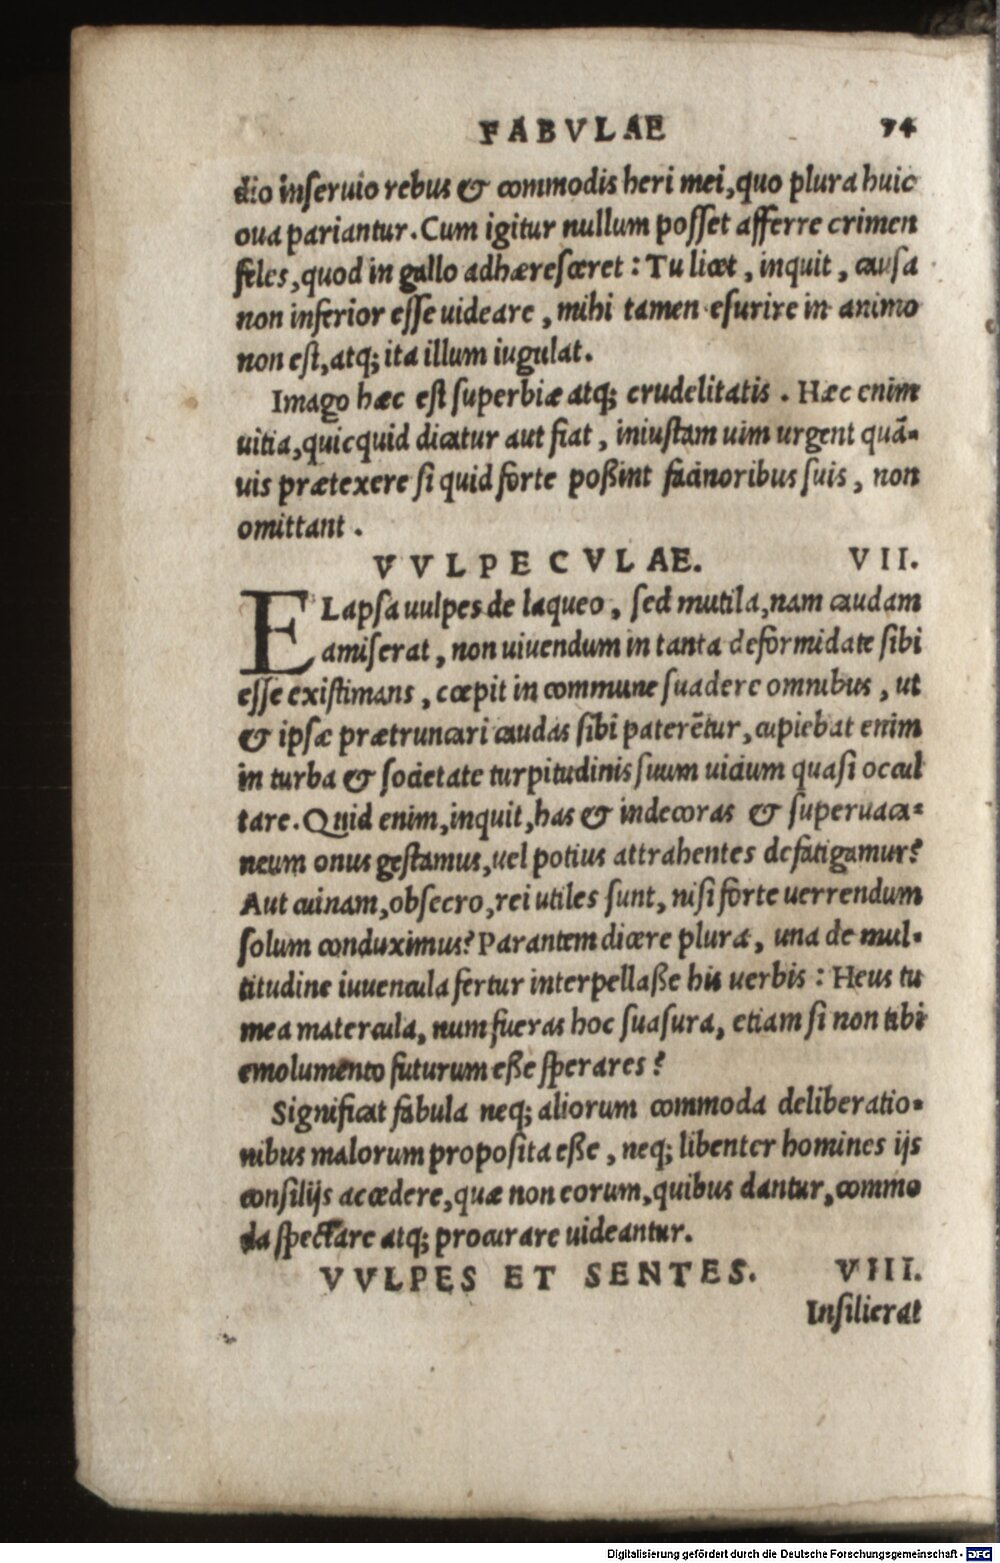 FABVLAE 74
dio inseruio rebus & commodis heri mei, quo plura huic
oua pariantur. Cum igitur nullum posset afferre crimen
feles, quod in gallo adhæresceret: Tu licet, inquit, causa
non inferior esse uideare, mihi tamen esurire in animo
non est, atq; ita illum iugulat.
Imago hæc est superbiæ atq; crudelitatis. Hæc enim
uitia, quicquid dicatur aut fiat, iniustam uim urgent quã-
uis prætexere si quid forte poßint facinoribus suis, non
omittant.
VVLPECVLAE. VII.
ELapsa uulpes de laqueo, sed mutila, nam caudam
amiserat, non uiuendum in tanta deformidate sibi
esse existimans, cœpit in commune suadere omnibus, ut
& ipsæ prætruncari caudas sibi paterẽtur, cupiebat enim
in turba & societate turpitudinis suum uicium quasi occul
tare. Quid enim, inquit, has & indecoras & superuaca-
neum onus gestamus, uel potius attrahentes defatigamur?
Aut cuinam, obsecro, rei utiles sunt, nisi forte uerrendum
solum conduximus? Parantem dicere plura, una de mul-
titudine iuuencula fertur interpellaße his uerbis: Heus tu
mea matercula, num fueras hoc suasura, etiam si non tibi
emolumento futurum eße sperares?
Significat fabula neq; aliorum commoda deliberatio-
nibus malorum proposita eße, neq; libenter homines ijs
consilijs accedere, quæ non eorum, quibus dantur, commo
da spectare atq; procurare uideantur.
VVLPES ET SENTES. VIII.
Insilierat
Digitalisierung gefördert durch die Deutsche Forschungsgemeinschaft - DFG